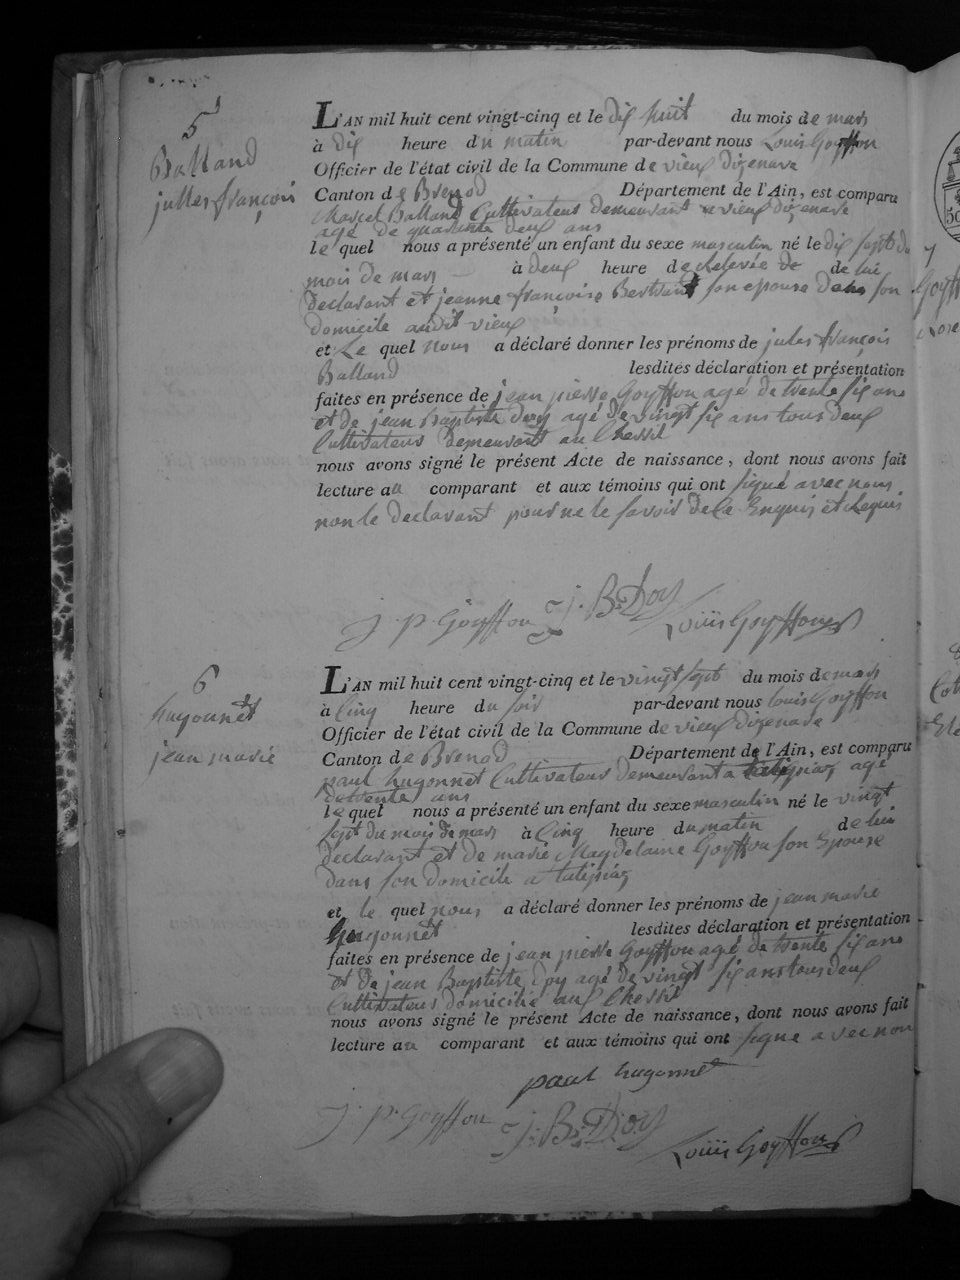 5
Balland
julles françois
L'AN mil huit cent vingt-cinq et le dix huit du mois de mars
à dix heure du matin par-devant nous Louis Goyffon
Officier de l'état civil de la Commune de vieux dizenave
Canton de Brenod Département de l'Ain, est comparu
Marcel Balland Cultivateur demeurant a vieux dizenave
agé de quarante deux ans
le quel nous a présenté un enfant du sexe masculin né le dix sept du
mois de mars à deux heure de relevée de de lui
declarant et jeanne françoise Bertrand son epouse dans son
domicile audit vieux
et Le quel nous a déclaré donner les prénoms de jules françois
Balland lesdites déclaration et présentation
faites en présence de jean pierre Goyffon agé de trente six ans
et de jean Baptiste Doy agé de vingt six ans tous deux
Cultivateurs demeurants au Chessit
nous avons signé le présent Acte de naissance, dont nous avons fait
lecture au comparant et aux témoins qui ont signé avec nous
non le declarant pour ne le savoir de ce Enquis et Requis
J. P. Goyffon J. B. Doy Louis Goyffon
6
hugonnet
jean marie
L'AN mil huit cent vingt-cinq et le vingt sept du mois de mars
à Cinq heure du soir par-devant nous louis Goyffon
Officier de l'état civil de la Commune de vieux dizenave
Canton de Brenod Département de l'Ain, est comparu
paul hugonnet Cultivateur demeurant a talipiaz agé
de trente ans
le quel nous a présenté un enfant du sexe masculin né le vingt
sept du mois de mars à Cinq heure du matin de lui
declarant et de marie Magdelaine Goyffon son Epouse
dans son domicile a talipiaz
et le quel nous a déclaré donner les prénoms de jean marie
hugonnet lesdites déclaration et présentation
faites en présence de jean pierre Goyffon agé de trente six ans
et de jean Baptiste doy agé de vingt six ans tous deux
Cultivateurs domicilié aux Chessit
nous avons signé le présent Acte de naissance, dont nous avons fait
lecture au comparant et aux témoins qui ont signe avec nous
paul hugonnet
J. P. Goyffon J. B. Doy
Louis Goyffon